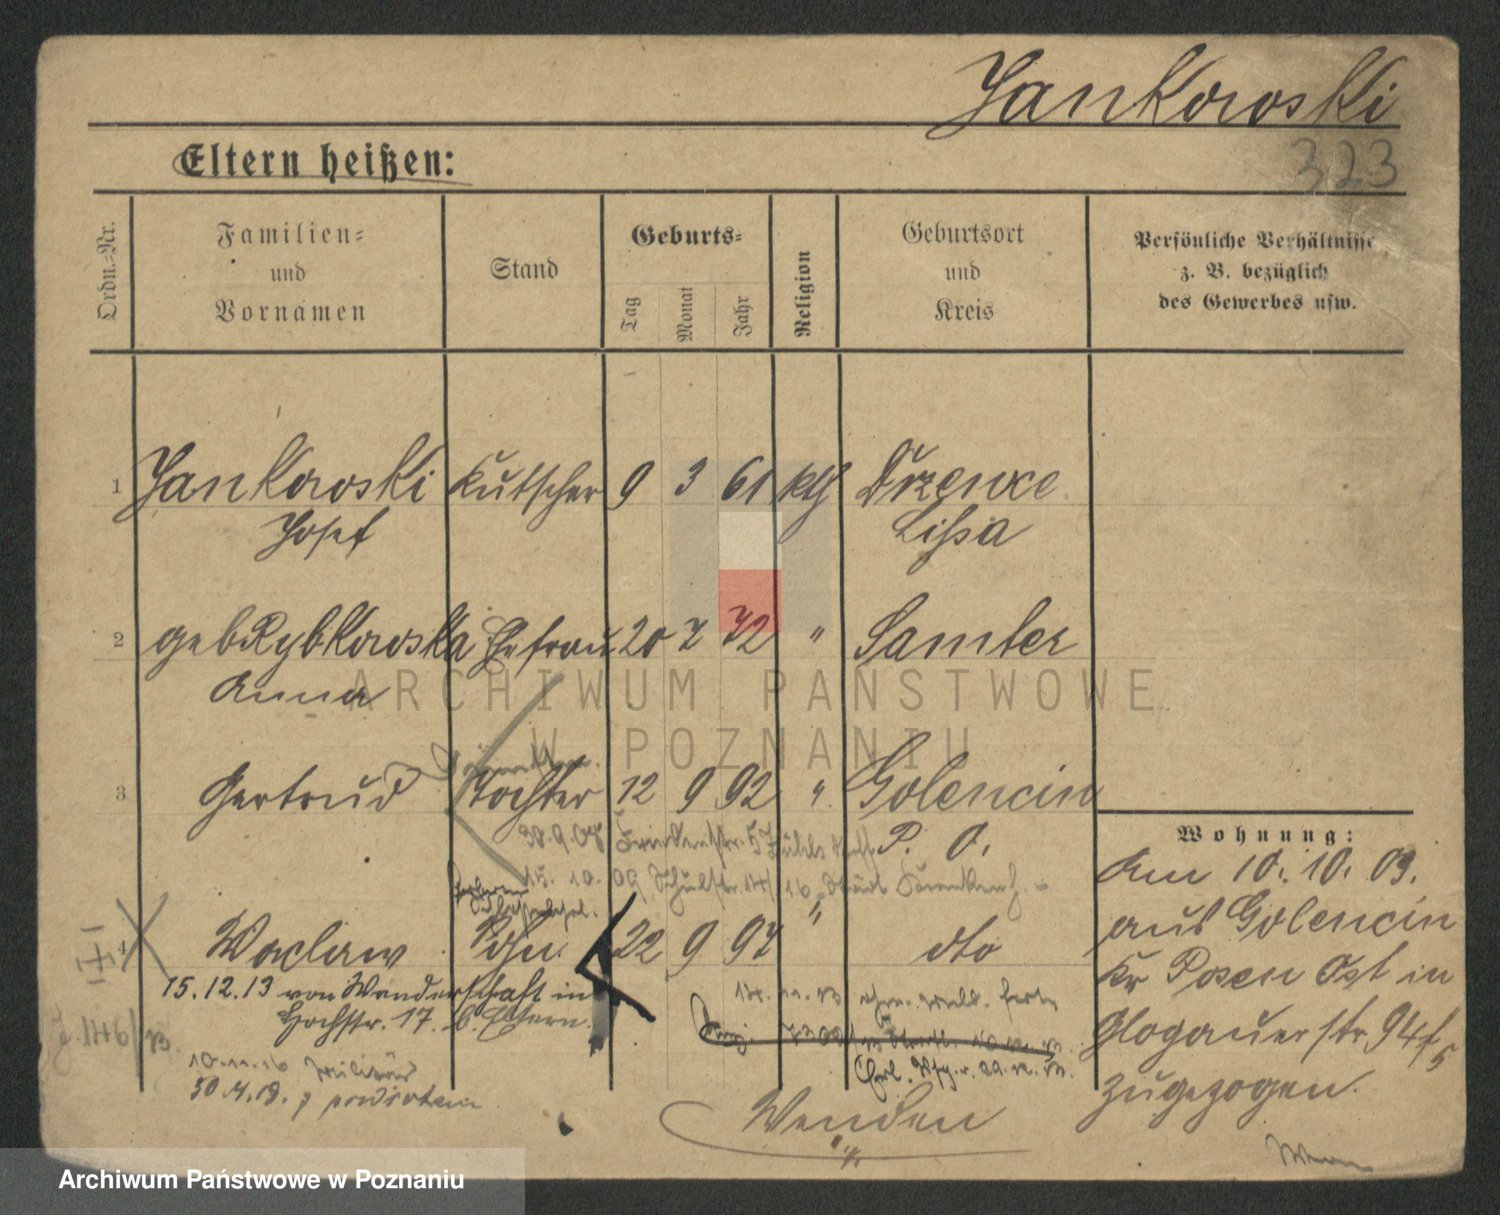 Jankowski
323
Eltern heißen:
Ordn.-Nr.
Familien-
und
Vornamen
Stand
Geburts-
Tag
Monat
Jahr
Religion
Geburtsort
und
Kreis
Persönliche Verhältnisse
z. B. bezüglich
des Gewerbes usw.
1 Jankowski Kutscher 9 3 61 kth Drzence
Josef Lissa
2 geb Rybkowska Ehefrau 20 7 72 " Samter
Anna
3 Gertrud Tochter 12 9 92 " Golencin
P. O.
30.9.08
15. 10. 09 Schulstr. 14/
4 Waclaw Sohn 22 9 97 " dto
15.12.13 von Wanderschaft in
Hochstr. 17 b. Eltern.
J. 146/13.
10.11.16 Militär
30.4.19. z powrotem
Wohnung:
Am 10. 10. 09.
aus Golencin
Kr Posen Ost in
Glogauerstr. 94
zugezogen.
Wenden
ARCHIWUM PAŃSTWOWE
W POZNANIU
Archiwum Państwowe w Poznaniu